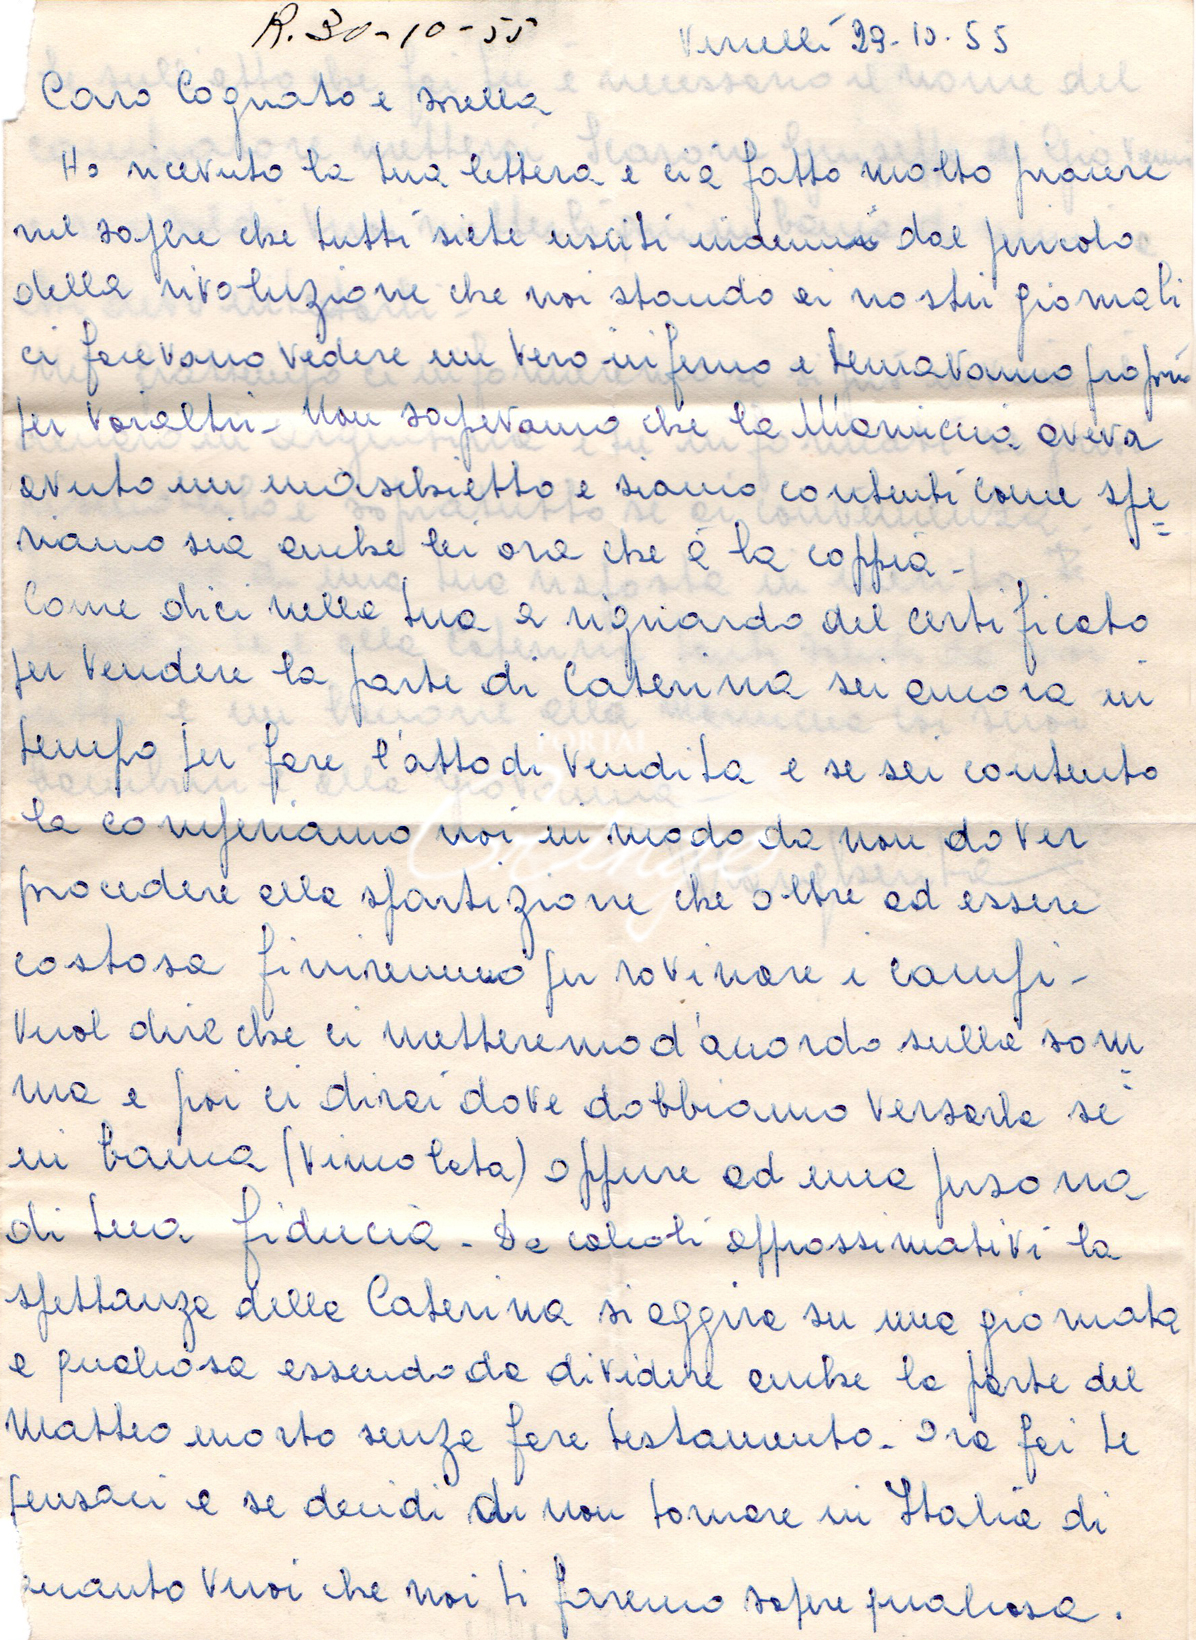 R. 30-10-55
Vercelli 29-10-55
Caro Cognato e sorella
Ho ricevuto la tua lettera e cià fatto molto piacere
nel sapere che tutti siete usciti indenni dal pericolo
della rivoluzione che noi stando ai nostri giornali
ci facevano vedere un vero inferno e temavamo proprio
per voialtri - Non sapevamo che la Mariuccia aveva
avuto un maschietto e siamo contenti come spe=
riamo sia anche lei ora che à la coppia -
Come dici nella tua a riguardo del certificato
per vendere la parte di Caterina sei ancora in
tempo per fare l'atto di vendita e se sei contento
la comperiamo noi in modo da non dover
procedere alla spartizione che oltre ad essere
costosa finiremmo per rovinare i campi -
Vuol dire che ci metteremo d'acordo sulla som=
ma e poi ci dirai dove dobbiamo versarla se
in banca (vincolata) oppure ad una persona
di tua fiducia - Da calcoli approssimativi la
spettanza della Caterina si aggira su una giornata
e qualcosa essendo da dividere anche la parte del
Matteo morto senza fare testamento - Ora fai te
pensaci e se decidi di non tornare in Italia di
quanto vuoi che noi ti faremo sapere qualcosa.
PORTAL